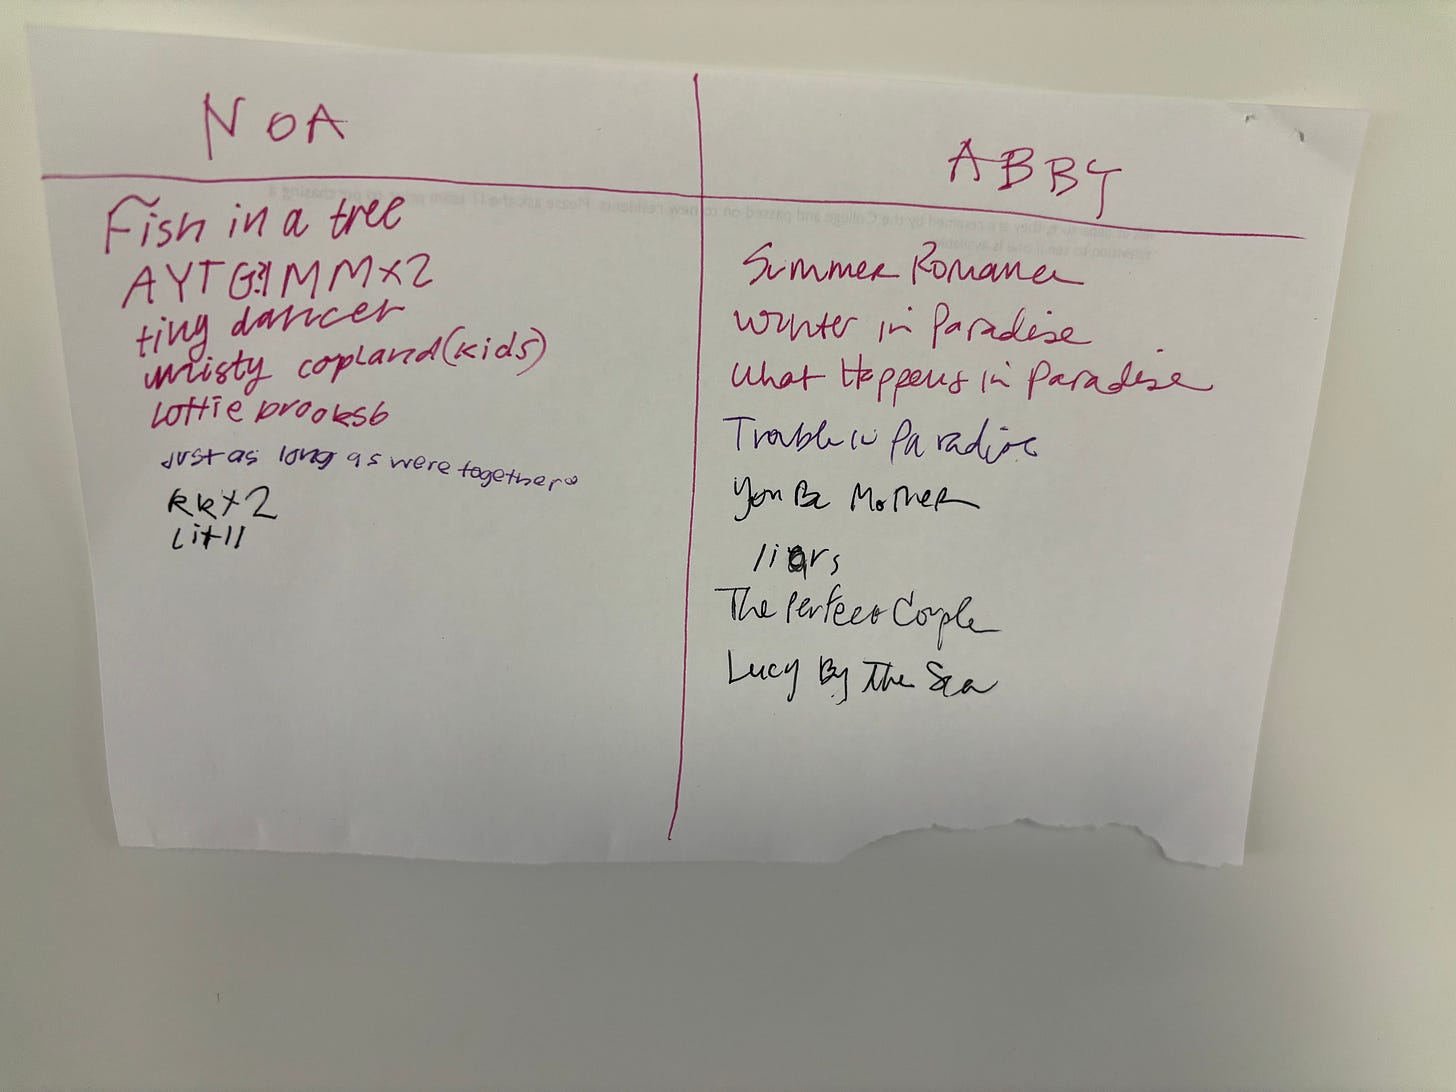 NOA
Fish in a tree
AYTG?IMMX2
tiny dancer
misty copland (kids)
lottie brooks6
just as long as were together
kkx2
Lit11
ABBY
Summer Romance
Winter in Paradise
What Happens in Paradise
Trouble in Paradise
You Be Mother
liars
The Perfect Couple
Lucy By The Sea